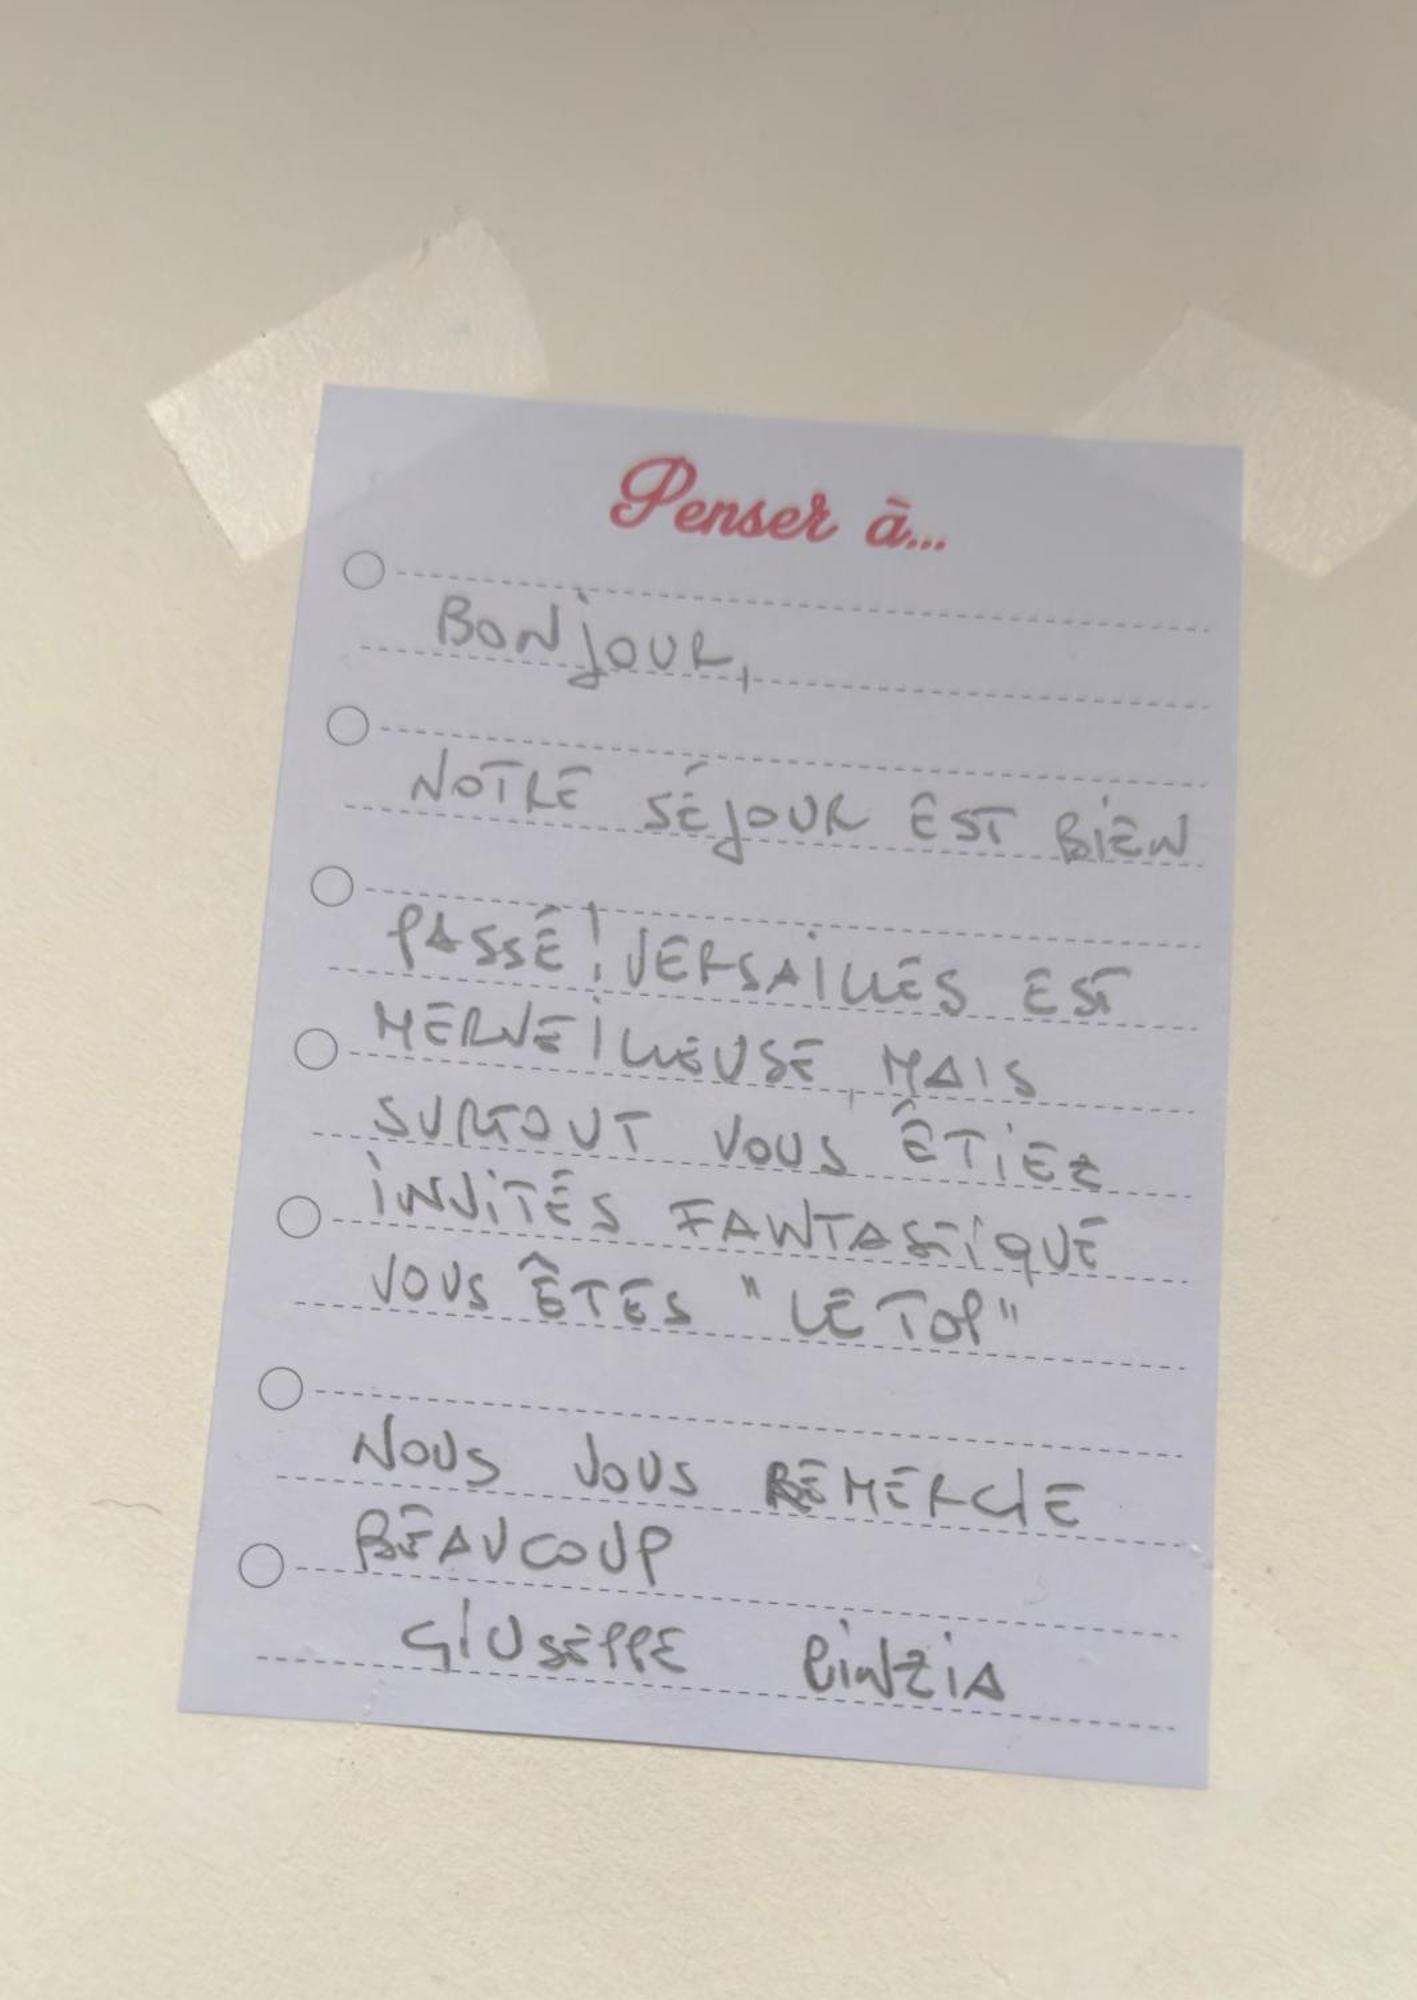 Penser à...
BONjOUR,
NOTRE SÉjOUR EST BIEN
PASSÉ! VERSAiLLES EST
MERVEiLLEUSE, MAIS
SURTOUT VOUS ÊTiEZ
iNViTÉS FANTASTiQUE
VOUS ÊTES "LE TOP"
NOUS VOUS REMERCIE
BEAUCOUP
GIUSEPPE CiNZiA